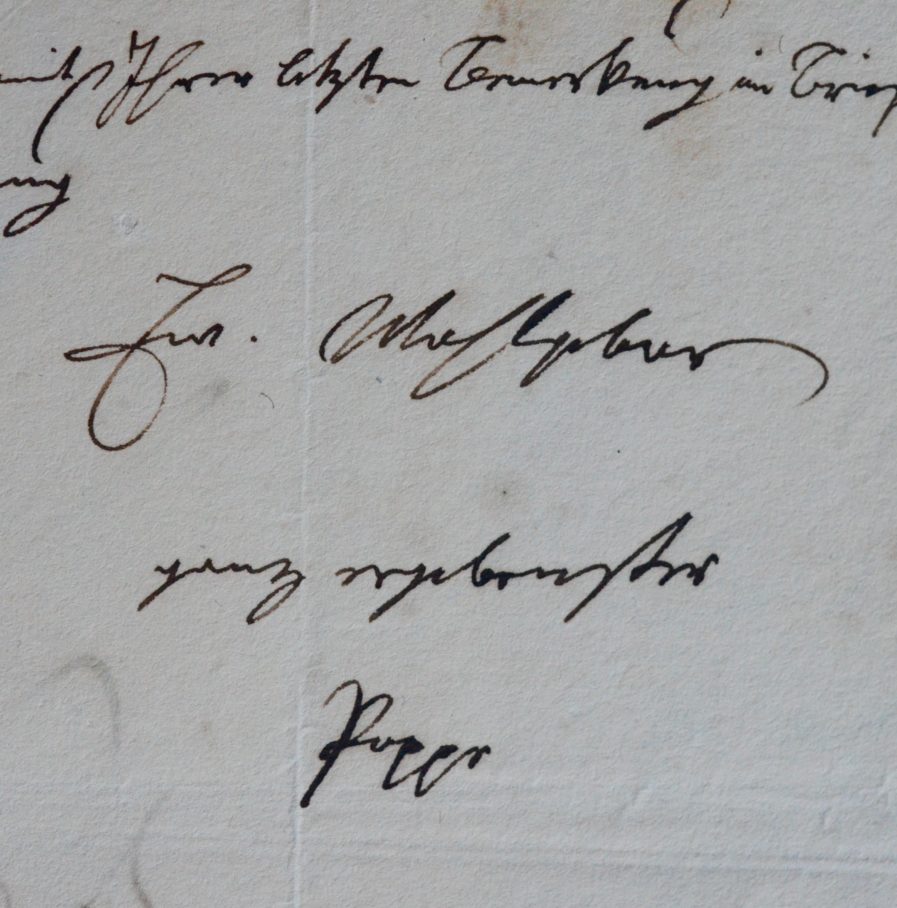 mit Ihrer letzten Bemerkung im Brief
ung
Ew. Wohlgebor
ganz ergebenster
Poppe